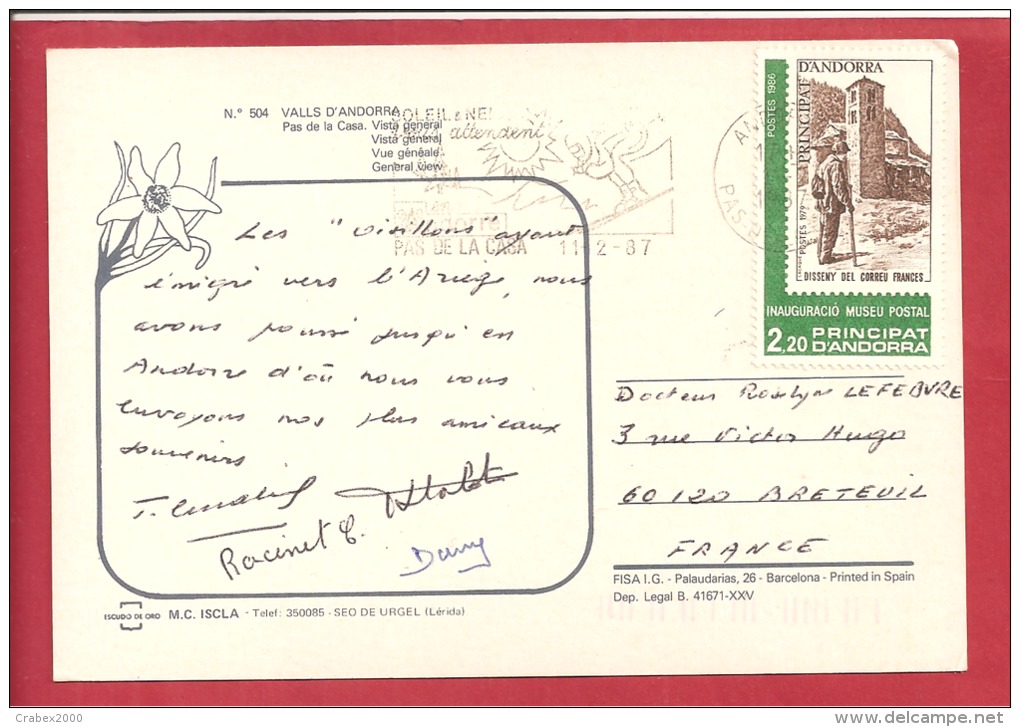 N.° 504 VALLS D'ANDORRA
Pas de la Casa. Vista general
Vista general
Vue généale
General view
SOLEIL & NEI
attendent
PAS DE LA CASA 11-2-87
POSTES 1986
PRINCIPAT D'ANDORRA
POSTES 1979
DISSENY DEL CORREU FRANCES
INAUGURACIÓ MUSEU POSTAL
2,20 PRINCIPAT
D'ANDORRA
Les " " ayant
émigré vers l'Ariege, nous
avons poussé jusqu'en
Andorre d'où nous vous
envoyons nos plus amicaux
souvenirs
Racinet C.
Dany
Docteur Roselyne LEFEBVRE
3 rue Victor Hugo
60120 BRETEUIL
FRANCE
FISA I.G. - Palaudarias, 26 - Barcelona - Printed in Spain
Dep. Legal B. 41671-XXV
ESCUDO DE ORO M.C. ISCLA - Telef: 350085 - SEO DE URGEL (Lérida)
Crabex2000
www.delcampe.net